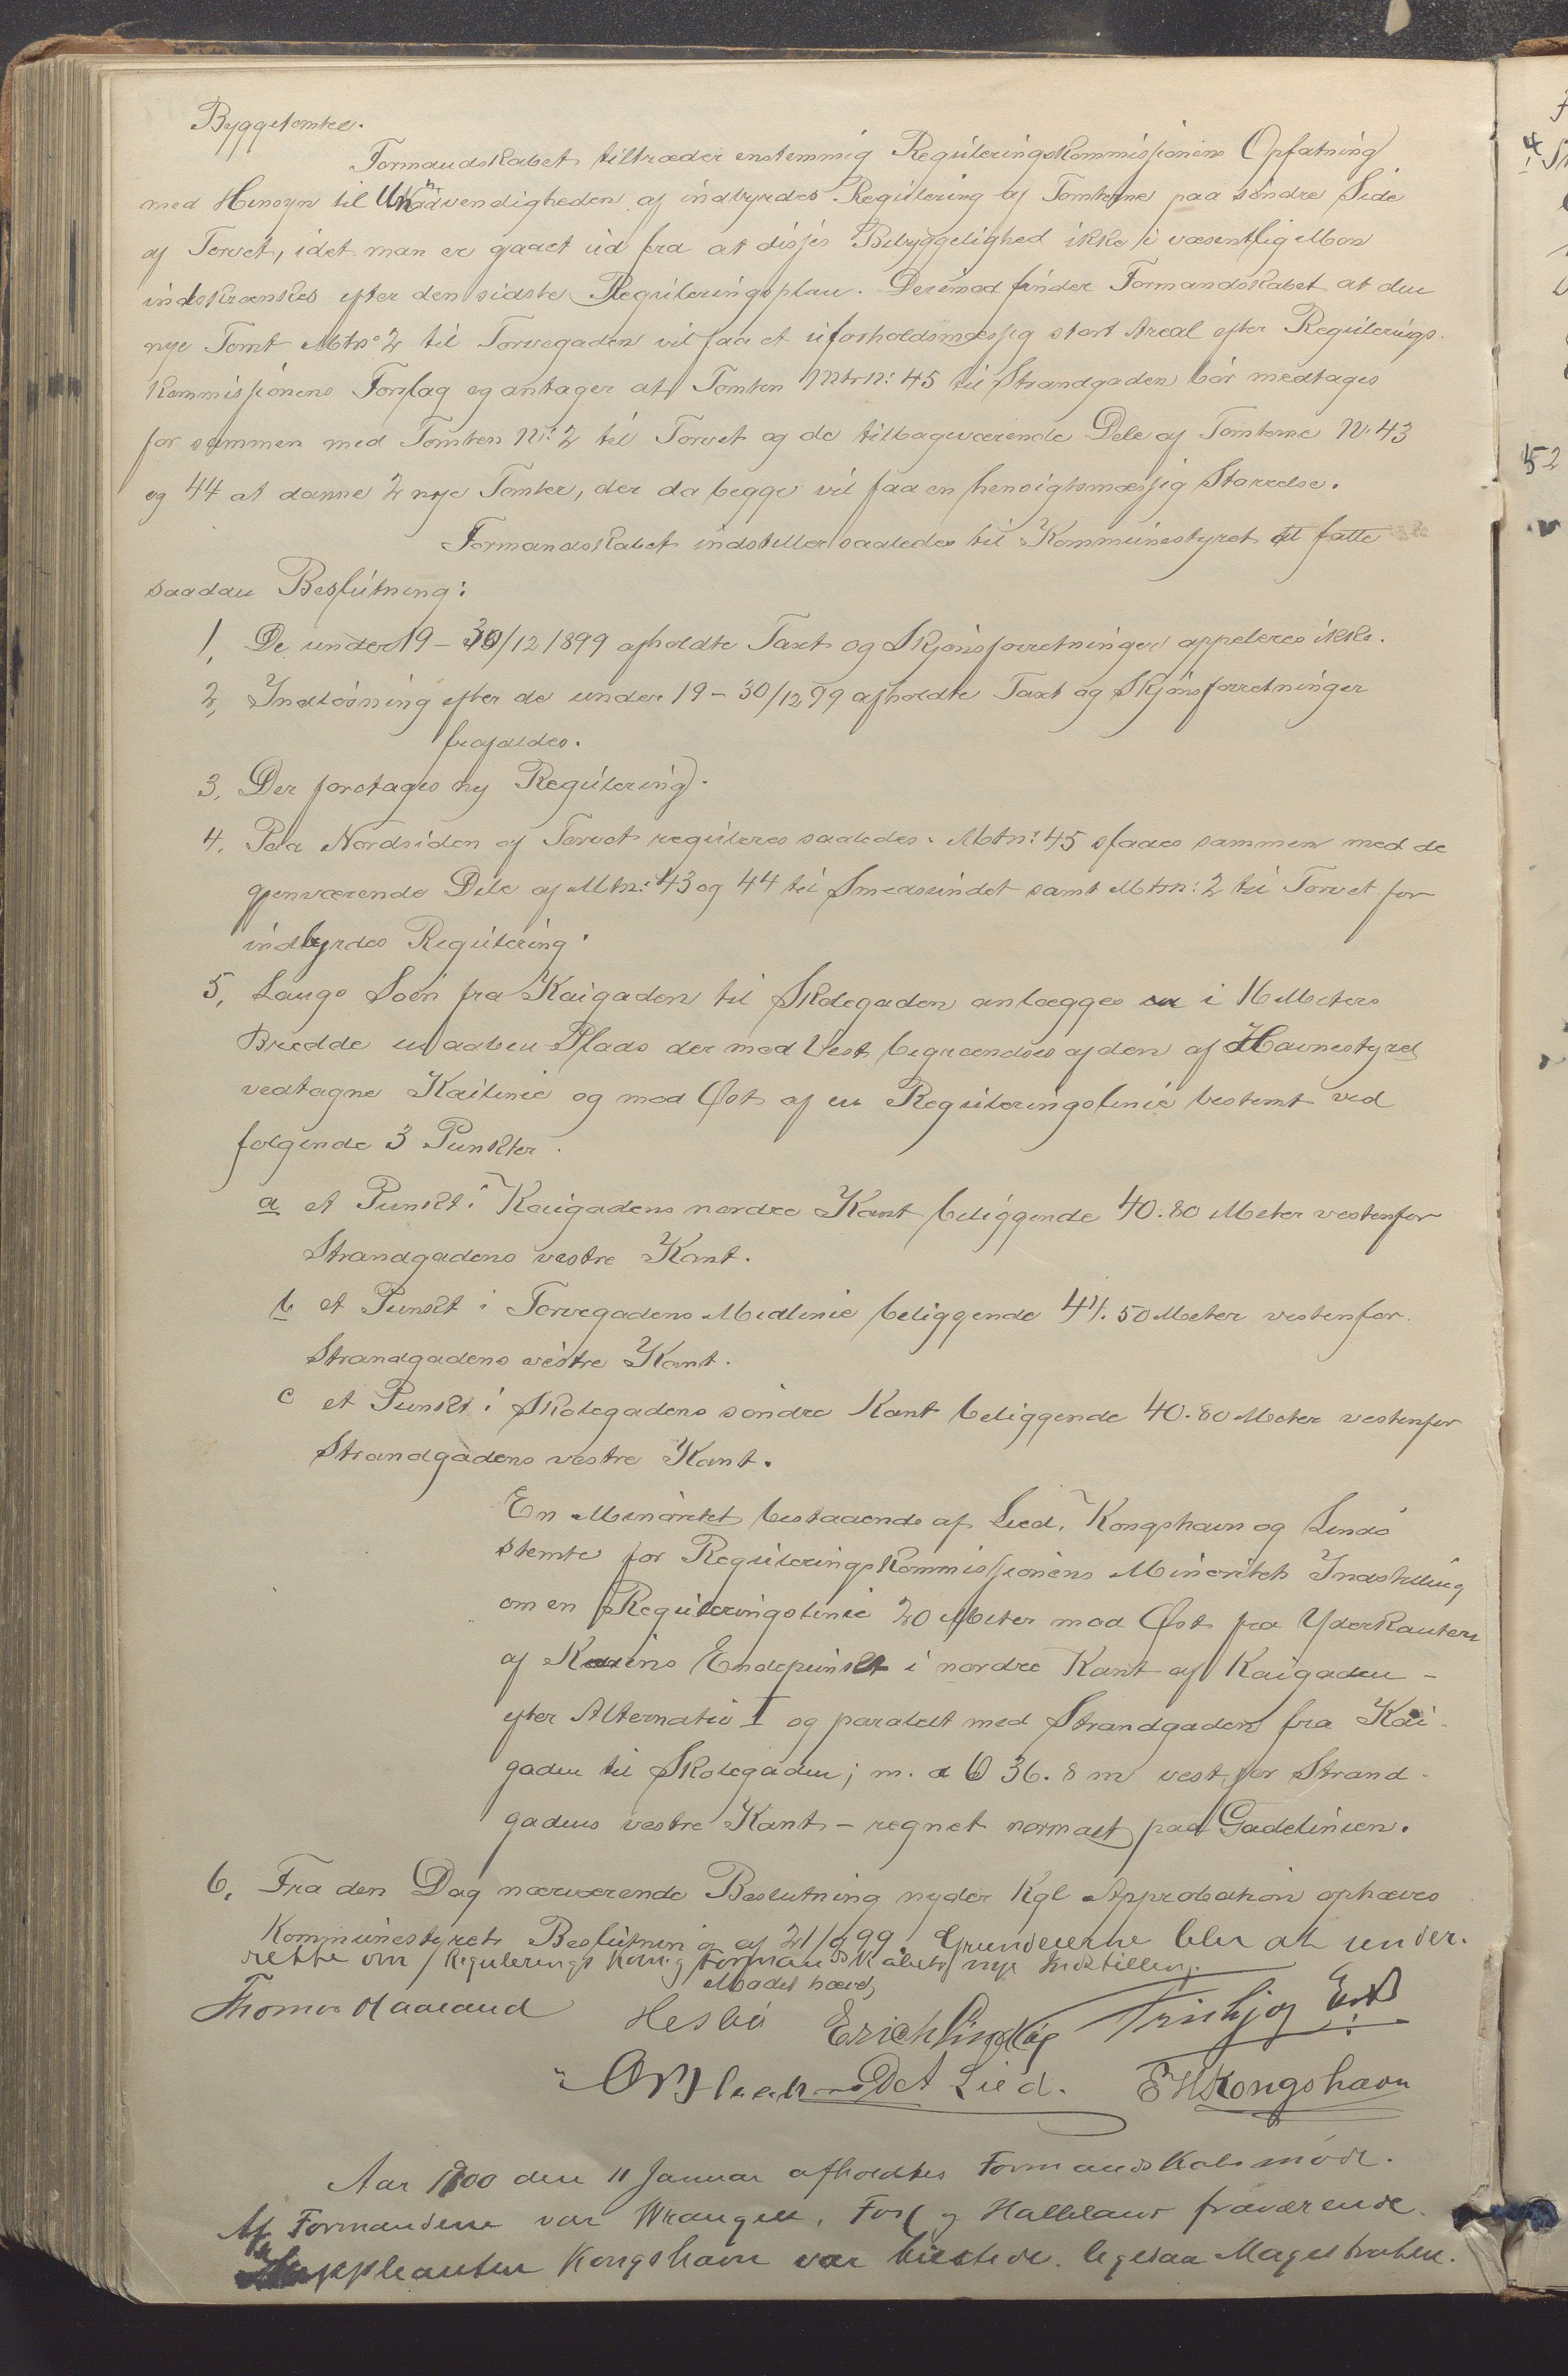 Byggetomter.
Formandskabet tiltræder enstemmig Reguleringskommissionens Opfatning
med Hensyn til Unødvendigheden af indbyrdes Regulering af Tomterne paa søndre Side
af Torvet, idet man er gaaet ud fra at disses Bebyggelighed ikke i væsentlig Mon
indskrænkes efter den sidste Reguleringsplan. Derimod finder Formandskabet at den
nye Tomt Mtrno 2 til Torvegaden vil faa et uforholdsmæssig stort Areal efter Regulerings-
kommissionens Forslag og antager at Tomten Mtrn: 45 til Strandgaden bør medtages
for sammen med Tomten N: 2 til Torvet og de tilbageværende Dele af Tomterne N. 43
og 44 at danne 2 nye Tomter, der da begge vil faa en hensigtsmæssig Størrelse.
Formandskabet indstiller saaledes til Kommunestyret at fatte
saadan Beslutning:
1, De under 19 – 30/12 1899 afholdte Taxt og Skjønsforretninger appeleres ikke.
2, Indløsning efter de under 19 – 30/12 99 afholdte Taxt og Skjønsforretninger
frafaldes.
3, Der foretages ny Regulering.
4, Paa Nordsiden af Torvet reguleres saaledes: Mtrn: 45 slaaes sammen med de
gjenværende Dele af Mtrn: 43 og 44 til Smedsundet samt Mtrn: 2 til Torvet for
indbyrdes Regulering.
5, Langs Søen fra Kaigaden til Skolegaden anlægges i 16 Meters
Bredde en aaben Plads der mod Vest begrændses af den af Havnestyret
vedtagne Kailinie og mod Øst af en Reguleringslinie bestemt ved
følgende 3 Punkter.
a et Punkt i Kaigadens nordre Kant beliggende 40.80 Meter vestenfor
Strandgadens vestre Kant.
b et Punkt i Torvegadens Midlinie beliggende 41.50 Meter vestenfor
Strandgadens vestre Kant.
c et Punkt i Skolegadens søndre Kant beliggende 40.80 Meter vestenfor
Strandgadens vestre Kant.
En Minoritet bestaaende af Lied, Kongshavn og Lindø
stemte for Reguleringskommissionens Minoritets Indstilling
om en Reguleringslinie 20 Meter mod Øst fra Yderkanten
af Kaiens Endepunkt i nordre Kant af Kaigaden –
efter Alternativ I og paralelt med Strandgaden fra Kai-
gaden til Skolegaden; m. a O 36.8 m vest for Strand-
gadens vestre Kant – regnet normalt paa Gadelinien.
6, Fra den Dag nærværende Beslutning nyder Kgl Approbation ophæves
Kommunestyrets Beslutning af 21/9 99. Grundeierne blir at under-
rette om Regulerings Kom. og Formandskabets nye Indstilling.
Mødet hævet,
Thomas Haaland Hesbø Erich Lindøe
Det Lied. E H Kongshavn
Aar 1900 den 11 Januar afholdtes Formandskabsmøde.
Af Formændene var Wrangell, Foss og Halleland fraværende.
Suppleanten Kongshavn var tilstede. ligesaa Magistraten.